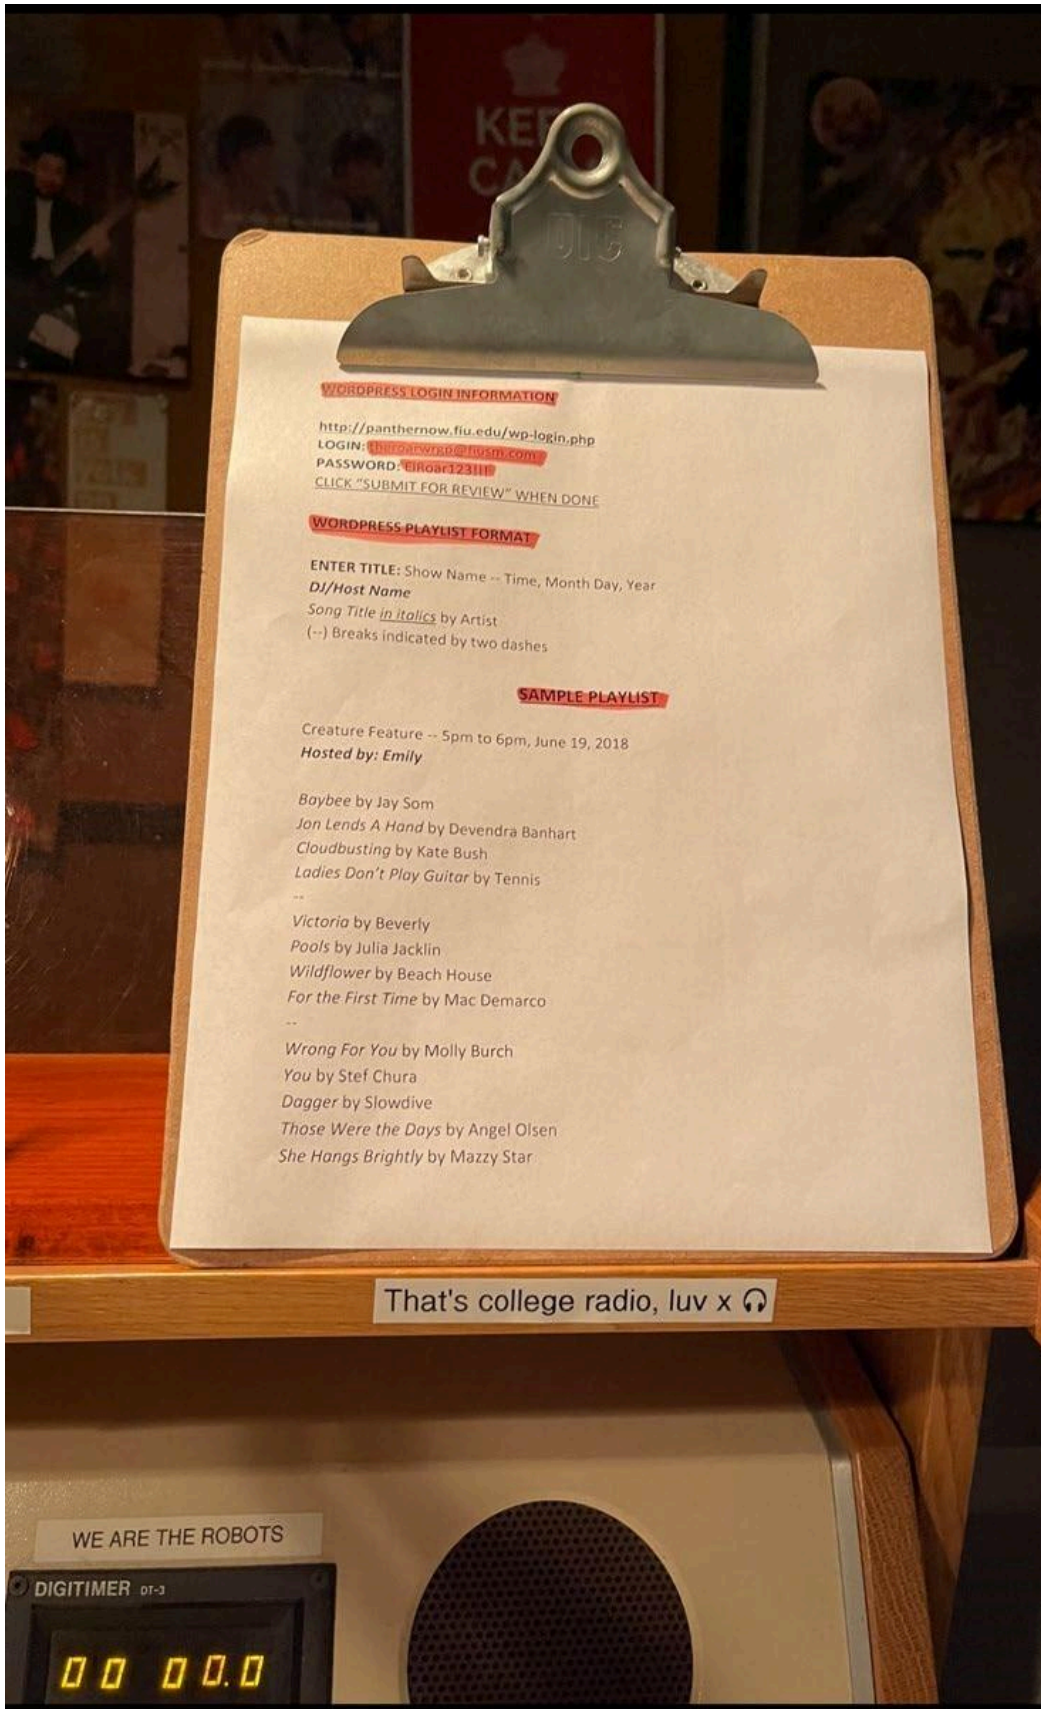 KEEP
CA
DTC
WORDPRESS LOGIN INFORMATION
http://panthernow.fiu.edu/wp-login.php
LOGIN:
PASSWORD:
CLICK "SUBMIT FOR REVIEW" WHEN DONE
WORDPRESS PLAYLIST FORMAT
ENTER TITLE: Show Name -- Time, Month Day, Year
DJ/Host Name
Song Title in italics by Artist
(--) Breaks indicated by two dashes
SAMPLE PLAYLIST
Creature Feature -- 5pm to 6pm, June 19, 2018
Hosted by: Emily
Baybee by Jay Som
Jon Lends A Hand by Devendra Banhart
Cloudbusting by Kate Bush
Ladies Don't Play Guitar by Tennis
--
Victoria by Beverly
Pools by Julia Jacklin
Wildflower by Beach House
For the First Time by Mac Demarco
--
Wrong For You by Molly Burch
You by Stef Chura
Dagger by Slowdive
Those Were the Days by Angel Olsen
She Hangs Brightly by Mazzy Star
That's college radio, luv x 🎧
WE ARE THE ROBOTS
DIGITIMER DT-3
00 00.0